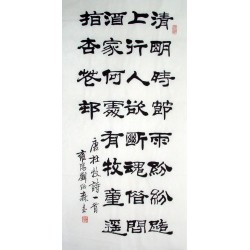 清明時節雨紛紛路
上行人欲斷魂借問
酒家何處有牧童遥
指杏花邨
唐杜牧詩一首
劉炳森書